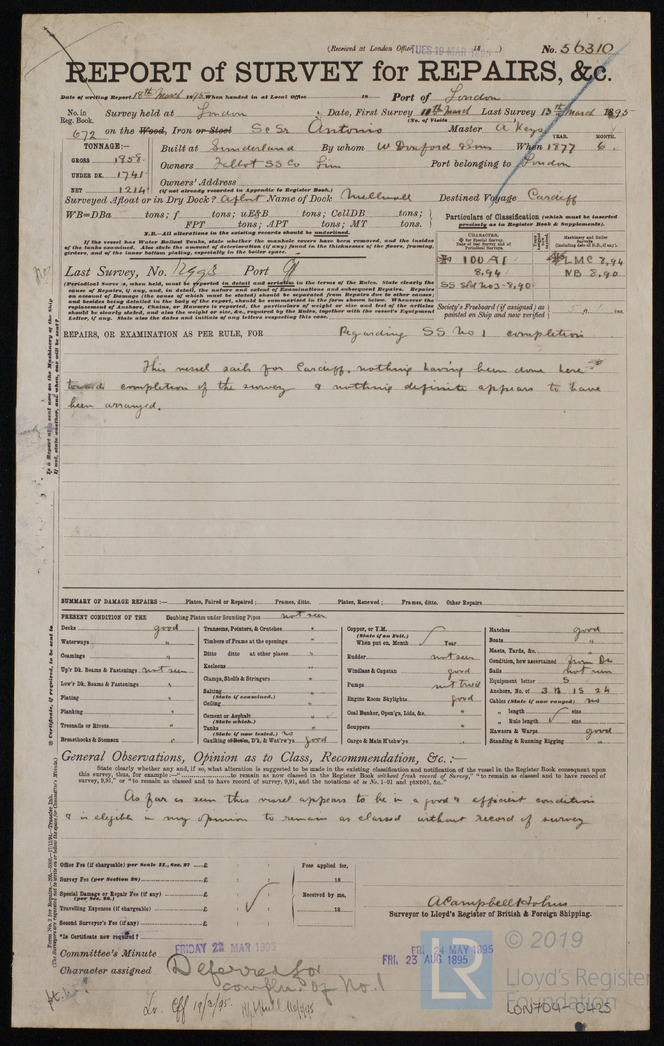 (Received at London Office TUES 19 MAR 1895 18 )
No. 56310
REPORT of SURVEY for REPAIRS, &c.
Date of writing Report 18th March 1895 When handed in at Local Office 18 Port of London
No. in Reg. Book. Survey held at London Date, First Survey March Last Survey 13th March 1895
(No. of Visits )
672 on the Wood, Iron or Steel Sc Sr Antonio Master A Keys
YEAR. MONTH.
TONNAGE:— Built at Sunderland By whom W Doxford & Sons When 1877 6.
GROSS 1958 Owners Talbot SS Co Lim Port belonging to London
UNDER DK. 1741 Owners' Address
NET 1214 (if not already recorded in Appendix to Register Book.)
Surveyed Afloat or in Dry Dock? Afloat Name of Dock Millwall Destined Voyage Cardiff
WB=DBa tons; f tons; uE&B tons; CellDB tons;
FPT tons; APT tons; MT tons.
N.B.—All alterations in the existing records should be underlined.
If the vessel has Water Ballast Tanks, state whether the manhole covers have been removed, and the insides of the tanks examined. Also state the amount of deterioration (if any) found in the thicknesses of the floors, framing, girders, and of the inner bottom plating, especially in the boiler space.
Particulars of Classification (which must be inserted precisely as in Register Book & Supplements).
CHARACTER. Machinery and Boiler Surveys
100 A1 LMC 8,94
8.94 NB 8,90
SS No3-8,90
Society's Freeboard (if assigned) as painted on Ship and now verified
Last Survey, No. 12993 Port
(Periodical Surveys, when held, must be reported in detail and seriatim in the terms of the Rules. State clearly the cause of Repairs, if any, and, in detail, the nature and extent of Examinations and subsequent Repairs. Repairs on account of Damage should be separated from Repairs due to other causes; and besides being detailed in the body of the report, should be summarised in the form shown below.
REPAIRS, OR EXAMINATION AS PER RULE, FOR Regarding SS No 1 completion
This vessel sails for Cardiff, nothing having been done here
toward completion of the survey & nothing definite appears to have
been arranged.
SUMMARY OF DAMAGE REPAIRS:— Plates, Faired or Repaired; Frames, ditto. Plates, Renewed; Frames, ditto. Other Repairs
PRESENT CONDITION OF THE Doubling Plates under Sounding Pipes not seen
Decks good
Waterways "
Coamings "
Up'r Dk. Beams & Fastenings not seen
Low'r Dk. Beams & Fastenings "
Plating "
Planking "
Treenails or Rivets "
Breasthooks & Stemson "
Transoms, Pointers, & Crutches "
Timbers of Frame at the openings "
Ditto ditto at other places "
Keelsons "
Clamps, Shelfs & Stringers "
Salting (State if examined.)
Ceiling "
Cement or Asphalt (State which.)
Tanks (State if now tested.) no
Caulking of Bottom, D'k, & Wat'rw'ys good
Copper, or Y.M. (State if on Felt.)
When put on, Month Year
Rudder not seen
Windlass & Capstan good
Pumps not tried
Engine Room Skylights good
Coal Bunker, Open'gs, Lids, &c. "
Scuppers "
Cargo & Main H'tchw'ys "
Hatches good
Boats "
Masts, Yards, &c. "
Condition, how ascertained from Dk
Sails not seen
Equipment letter S
Anchors, No. of 3B 1S 2K
Cables (State if now ranged) no
" length size
" Rule length size
Hawsers & Warps good
Standing & Running Rigging "
General Observations, Opinion as to Class, Recommendation, &c.:—
State clearly whether any and, if so, what alteration is suggested to be made in the existing classification and notification of the vessel in the Register Book consequent upon this survey, thus, for example:—"to remain as now classed in the Register Book without fresh record of Survey," "to remain as classed and to have record of survey, 9,91," or "to remain as classed and to have record of survey, 9,91, and the notations of ss No. 1-91 and ptND91, &c."
As far as seen this vessel appears to be in a good & efficient condition
& is eligible in my opinion to remain as classed without record of survey
Office Fee (if chargeable) per Scale II., Sec. 27 £ Fees applied for,
Survey Fee (per Section 28) £ 18
Special Damage or Repair Fee (if any) (per Sec. 28.) £ Received by me,
Travelling Expenses (if chargeable) £ 18
Second Surveyor's Fee (if any) £
*Is Certificate now required?
A Campbell Holms
Surveyor to Lloyd's Register of British & Foreign Shipping.
Committee's Minute FRIDAY 22 MAR 1895 FRI. 24 MAY 1895
FRI. 23 AUG 1895
Character assigned Deferred for
compln. of No. 1
Lr. Cff 19/3/95.
© 2019
LR
Lloyd's Register
Foundation
LON704-0425